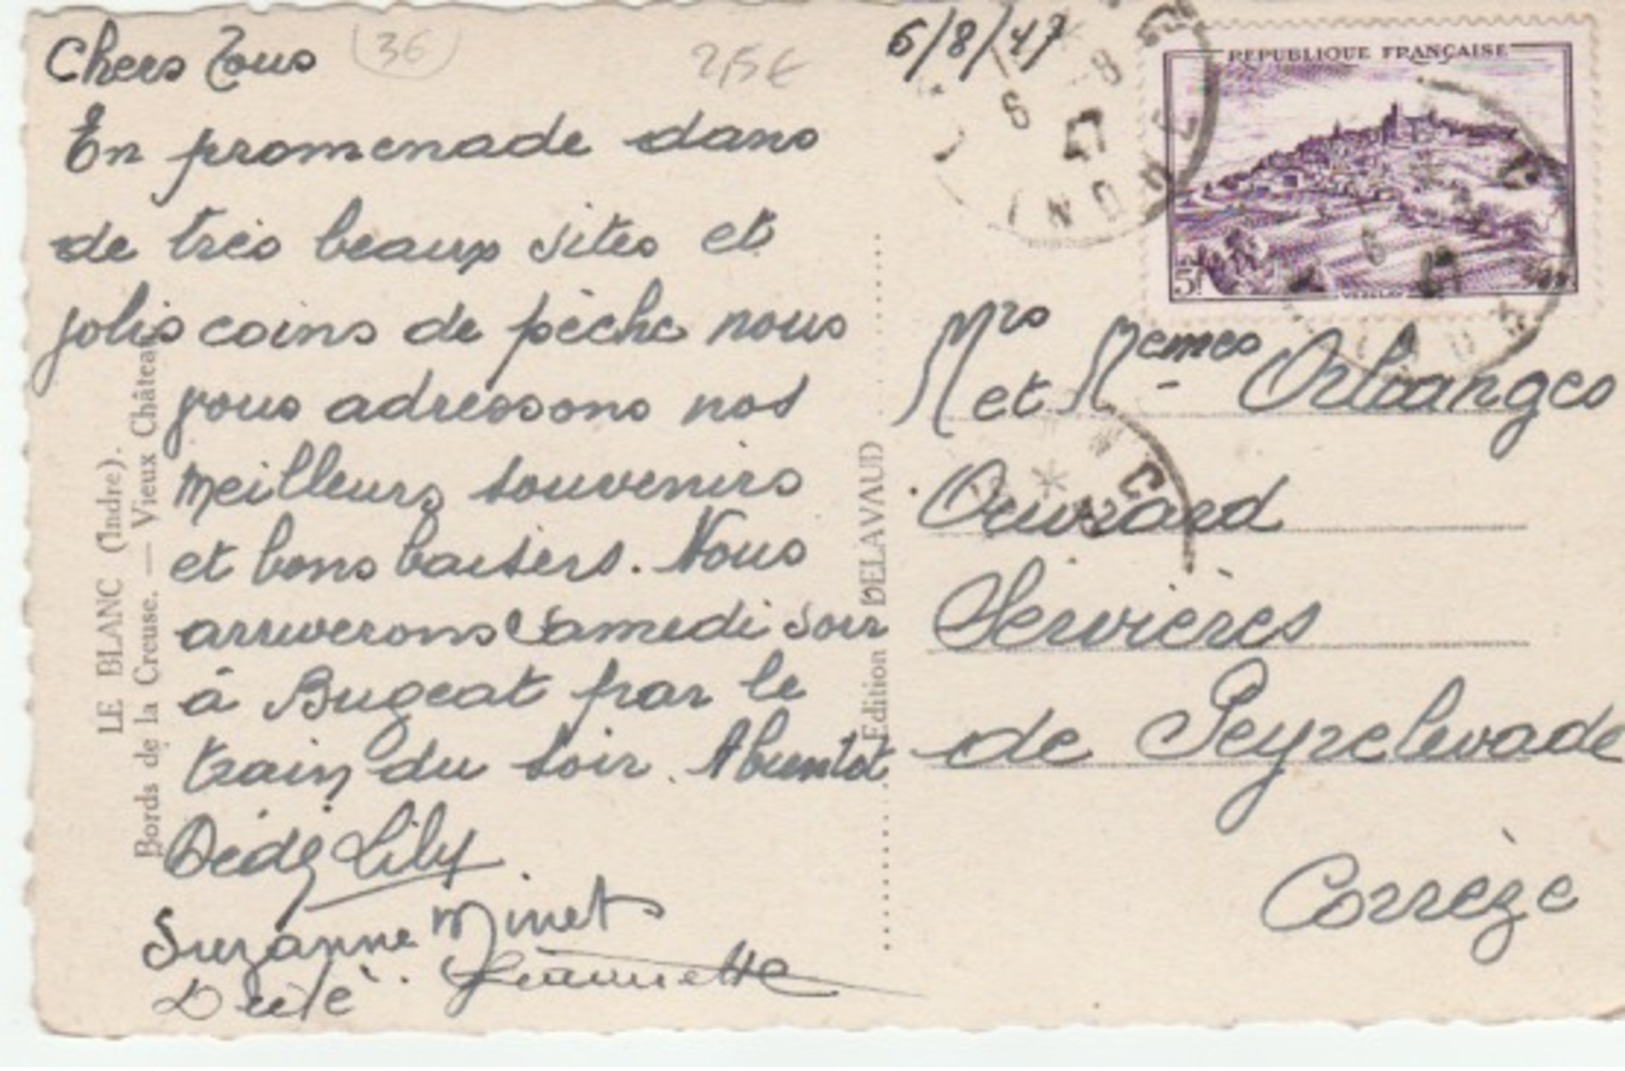 Chers Tous
36
2,5€
6/8/47
En promenade dans
de très beaux sites et
jolis coins de pêche nous
vous adressons nos
meilleurs souvenirs
et bons baisers. Nous
arriverons Samedi soir
à Bugeat par le
train du soir. A bientôt
Dédé Lily
Suzanne Minet
Jeannette
LE BLANC (Indre).
Bords de la Creuse. — Vieux Château
Edition DELAVAUD
REPUBLIQUE FRANÇAISE
5f
VEZELAY
6 -8
47
INDRE
Mrs et Memes Orluanges
Ouvrard
Servières
de Peyrelevade
Corrèze